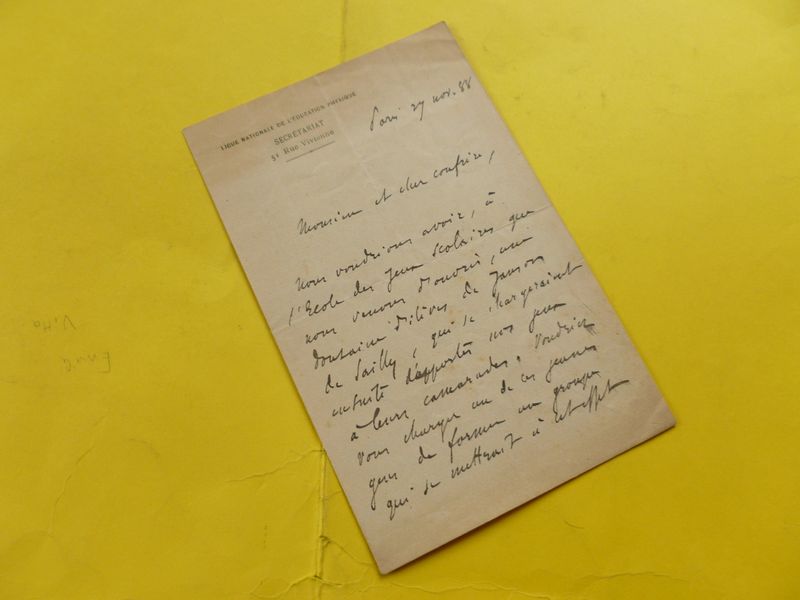 LIGUE NATIONALE DE L'ÉDUCATION PHYSIQUE
SECRÉTARIAT
51 Rue Vivienne
Paris 29 nov. 88
Monsieur et cher confrère,
Nous voudrions avoir, à
l'Ecole des Jeux Scolaires que
nous venons d'ouvrir, une
douzaine d'élèves de Janson
de Sailly, qui se chargeraient
ensuite d'apporter nos jeux
à leurs camarades. Voudriez
vous charger un de ces jeunes
gens de former un groupe
qui se mettrait à cet effet